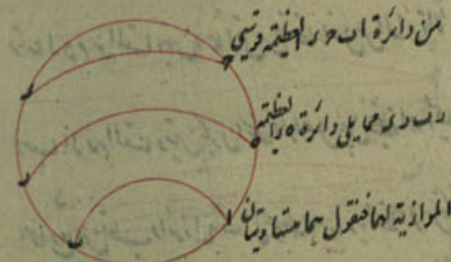 من دائرة اب حد العظيمة وقسي
د ب د ر مما يلى دائرة ه ر العظيمة
الموازية لهما فنقول هما متساويتان
ح
د
ه
ر
ا
ب